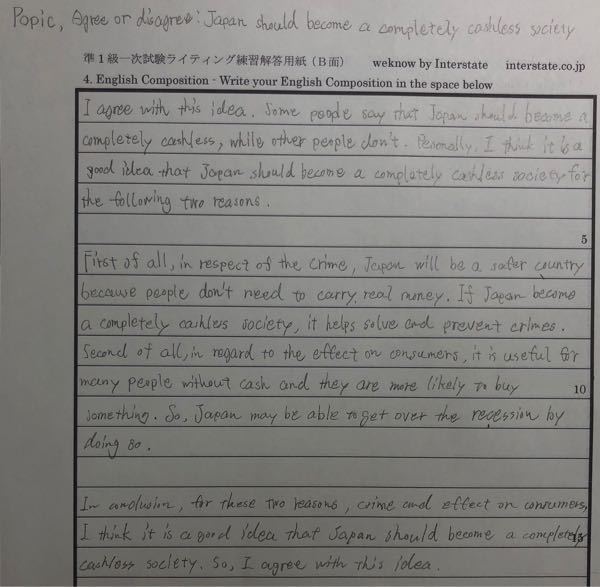 Popic, Agree or disagree: Japan should become a completely cashless society
準1級一次試験ライティング練習解答用紙（B面） weknow by Interstate interstate.co.jp
4. English Composition - Write your English Composition in the space below
I agree with this idea. Some people say that Japan should become a
completely cashless, while other people don't. Personally, I think it is a
good idea that Japan should become a completely cashless society for
the following two reasons.
5
First of all, in respect of the crime, Japan will be a safer country
because people don't need to carry real money. If Japan become
a completely cashless society, it helps solve and prevent crimes.
Second of all, in regard to the effect on consumers, it is useful for
many people without cash and they are more likely to buy 10
something. So, Japan may be able to get over the recession by
doing so.
In conclusion, for these two reasons, crime and effect on consumers,
I think it is a good idea that Japan should become a completely 15
cashless society. So, I agree with this idea.